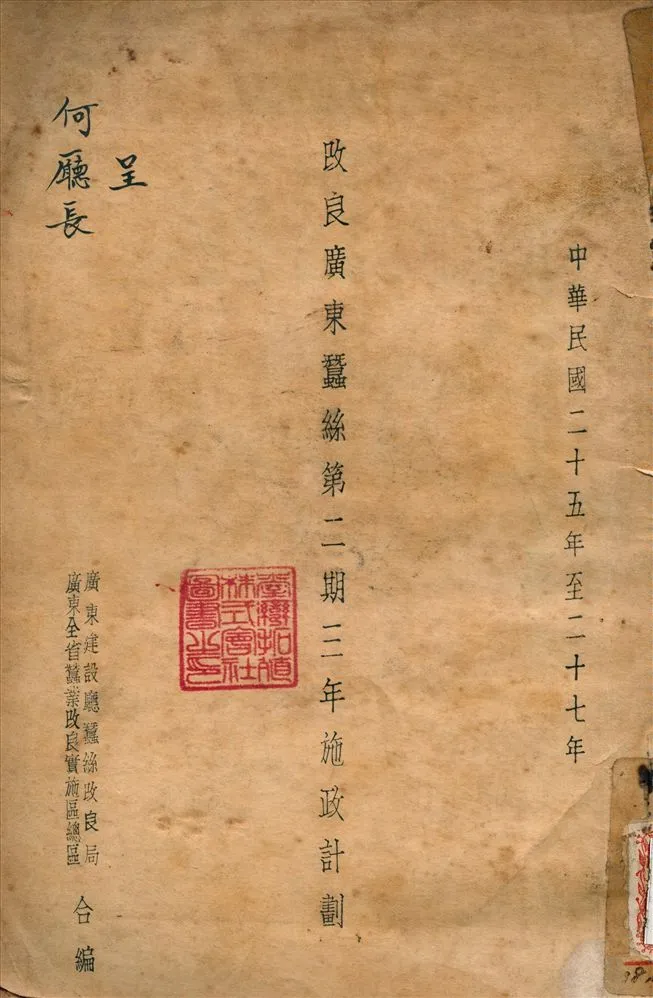 中華民國二十五年至二十七年
改良廣東蠶絲第二期三年施政計劃
呈
何廳長
廣東建設廳蠶絲改良局
廣東全省蠶業改良實施區總區
合編
臺灣拓殖
株式會社
圖書之印